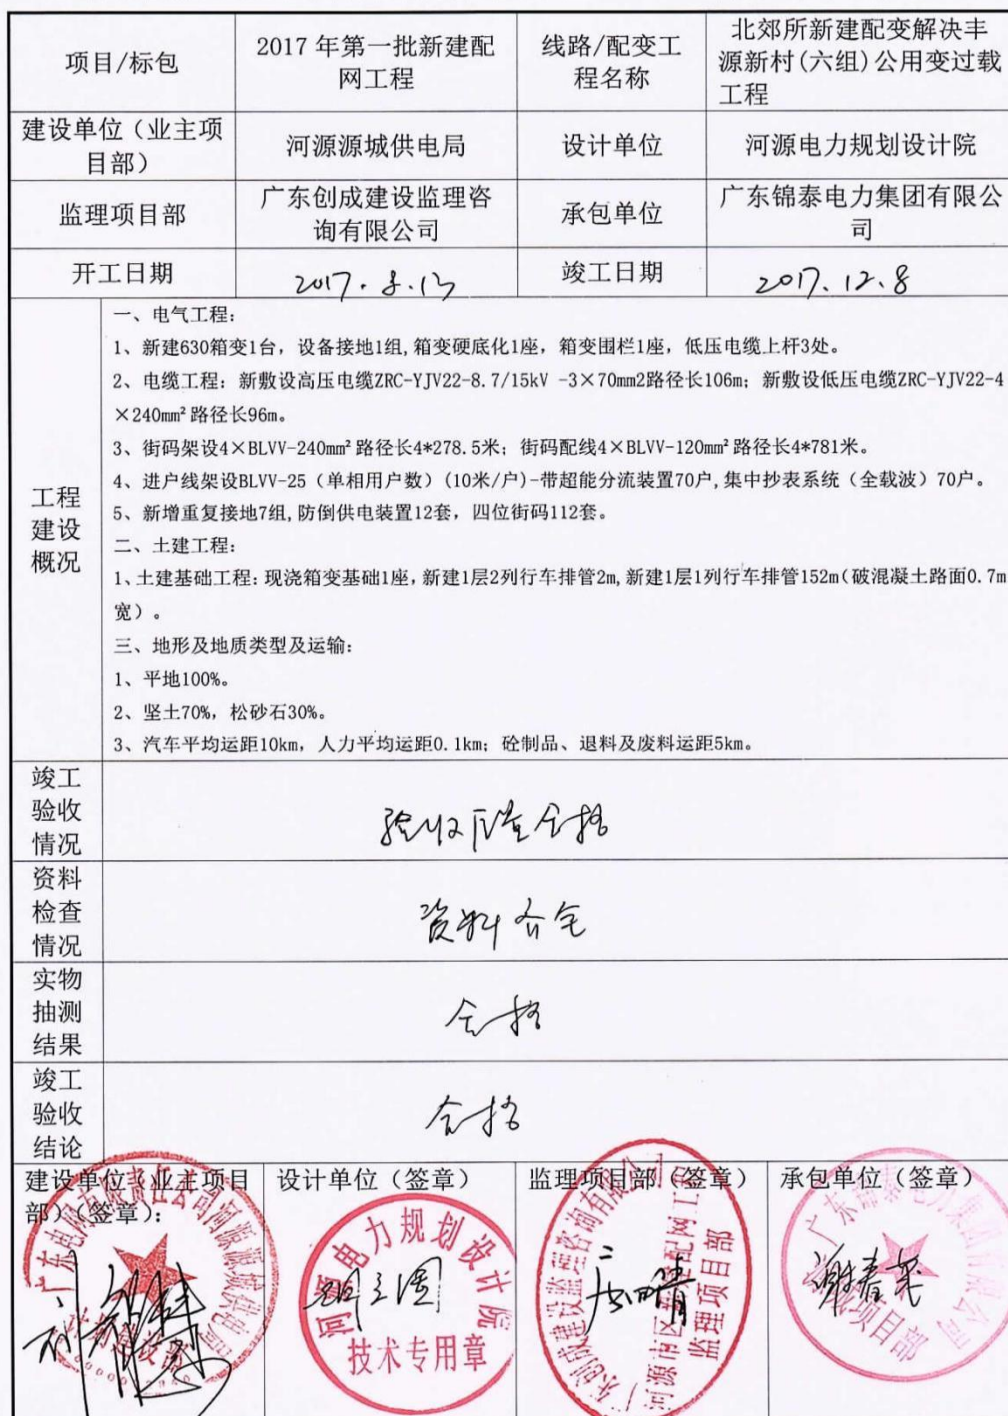 项目/标包
2017 年第一批新建配
网工程
线路/配变工
程名称
北郊所新建配变解决丰
源新村(六组)公用变过载
工程
建设单位（业主项
目部）
河源源城供电局
设计单位
河源电力规划设计院
监理项目部
广东创成建设监理咨
询有限公司
承包单位
广东锦泰电力集团有限公
司
开工日期
2017.8.13
竣工日期
2017.12.8
工程
建设
概况
一、电气工程：
1、新建630箱变1台，设备接地1组,箱变硬底化1座，箱变围栏1座，低压电缆上杆3处。
2、电缆工程：新敷设高压电缆ZRC-YJV22-8.7/15kV -3×70mm2路径长106m；新敷设低压电缆ZRC-YJV22-4
×240mm²路径长96m。
3、街码架设4×BLVV-240mm²路径长4*278.5米；街码配线4×BLVV-120mm²路径长4*781米。
4、进户线架设BLVV-25（单相用户数）(10米/户)-带超能分流装置70户,集中抄表系统（全载波）70户。
5、新增重复接地7组,防倒供电装置12套，四位街码112套。
二、土建工程：
1、土建基础工程：现浇箱变基础1座，新建1层2列行车排管2m,新建1层1列行车排管152m(破混凝土路面0.7m
宽）。
三、地形及地质类型及运输：
1、平地100%。
2、坚土70%，松砂石30%。
3、汽车平均运距10km，人力平均运距0.1km；砼制品、退料及废料运距5km。
竣工
验收
情况
验收质量合格
资料
检查
情况
资料齐全
实物
抽测
结果
合格
竣工
验收
结论
合格
建设单位（业主项目
部）（签章）：
设计单位（签章）
监理项目部（签章）
承包单位（签章）
广东电网有限责任公司河源源城供电局
河源电力规划设计院
技术专用章
广东创成建设监理咨询有限公司
监理项目部
广东锦泰电力集团有限公司
项目部